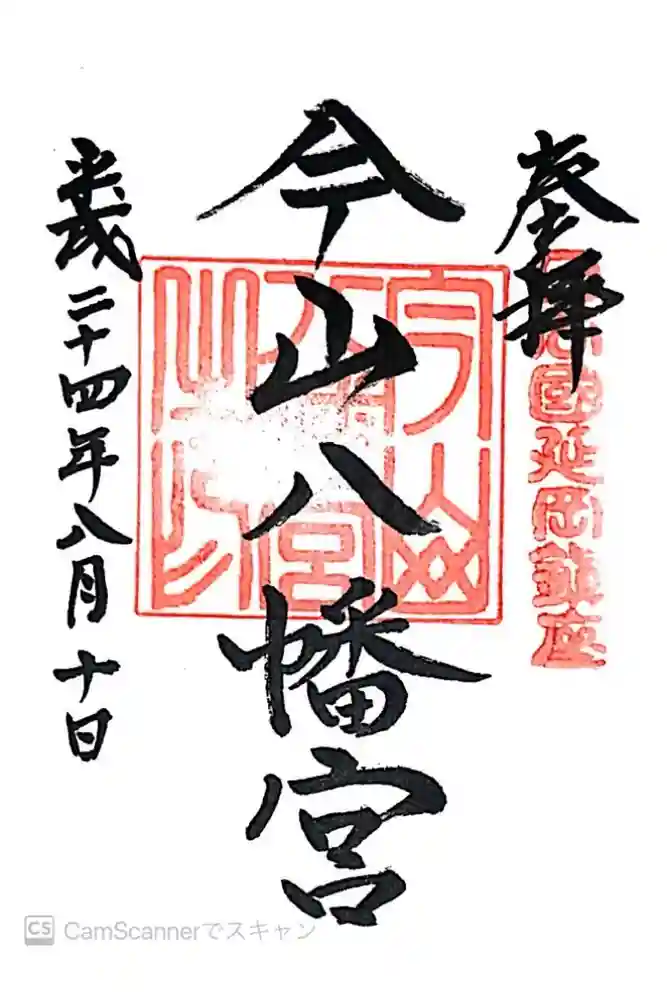 奉拝
日向國延岡鎮座
今山八幡宮
平成二十四年八月十日
CS CamScannerでスキャン